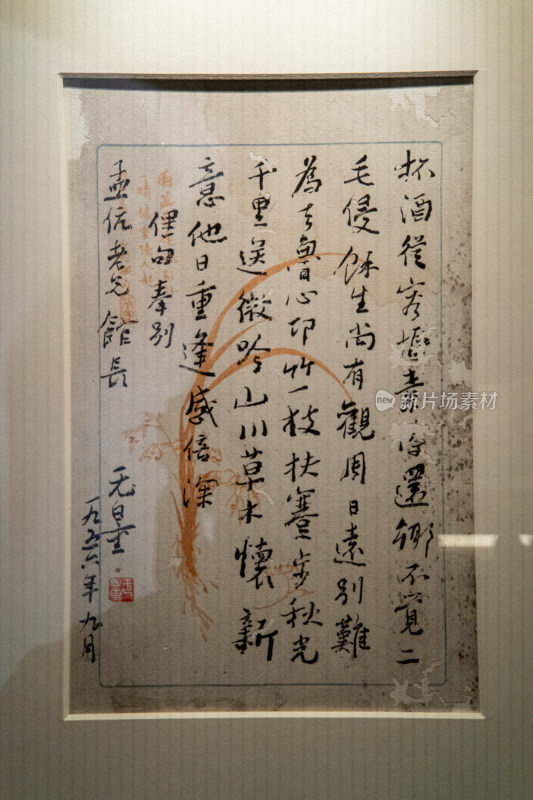 杯酒從容素還鄉不覺二
毛侵餘生尚有觀周日遠別難
為去魯心卭竹一枝扶蹇步秋光
千里送微吟山川草木懷新
意他日重逢感倍深
俚句奉別
孟伉老兄館長
无量
一九五六年九月
新片场素材